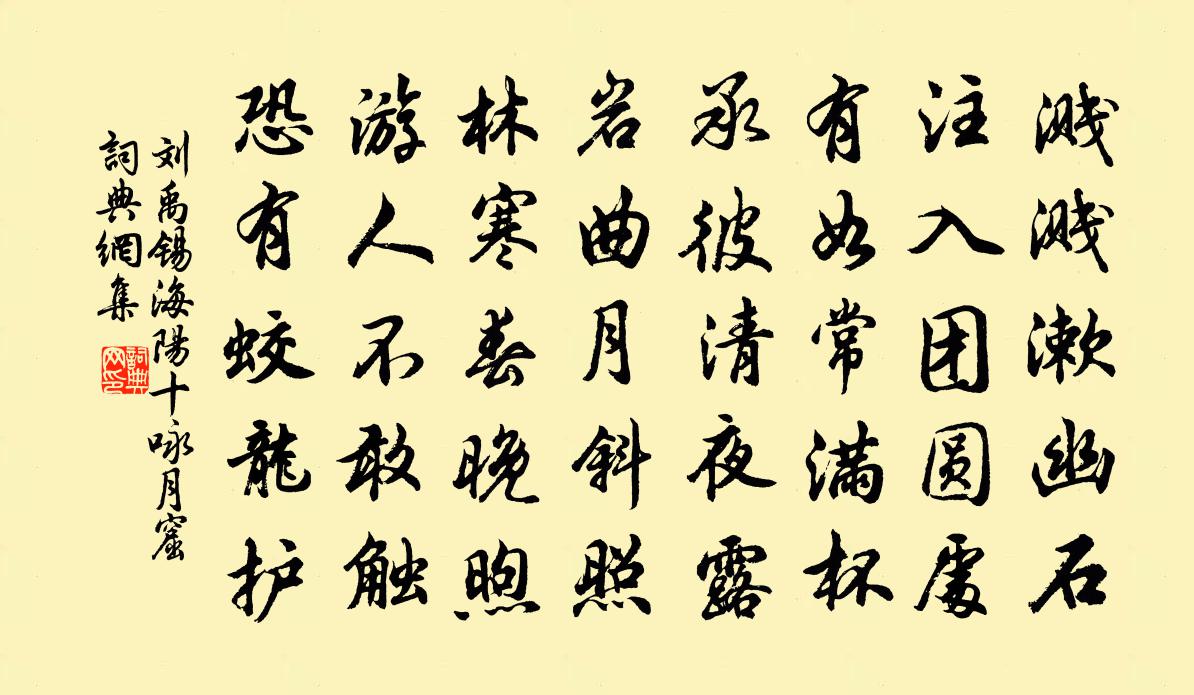 溅溅漱幽石
注入团圆處
有如常满杯
承彼清夜露
岩曲月斜照
林寒春晚煦
游人不敢触
恐有蛟龍护
刘禹锡海陽十咏月窟
詞典網集
詞典网印